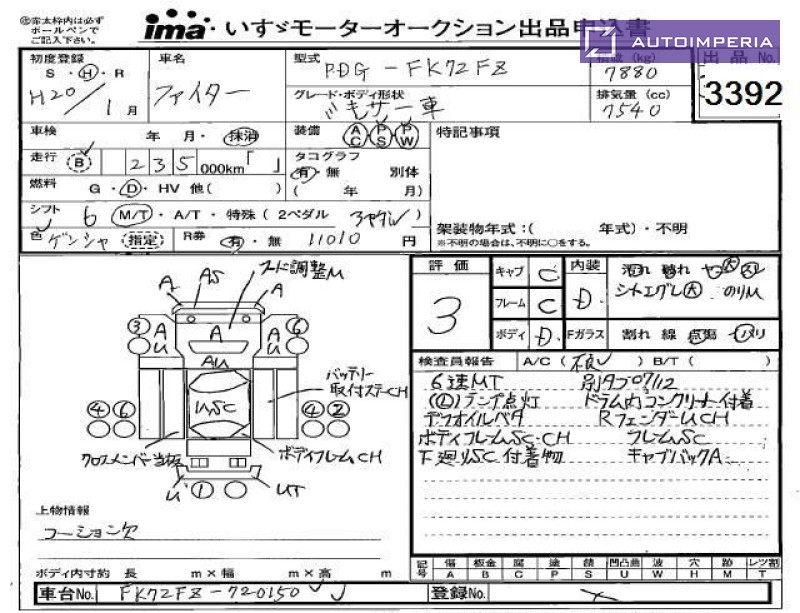 ㊟赤太枠内は必ず
ボールペンで
ご記入下さい。
ima いすゞモーターオークション出品申込書
AUTOIMPERIA
初度登録
S・H・R
H20/1月
車名
ファイター
型式
PDG-FK72FZ
(kg)
7880
出品No.
3392
グレード・ボディ形状
ミキサー車
排気量 (cc)
7540
車検 年 月・抹消
装備 AC PS PW
特記事項
走行 B 235,000km「 」
タコグラフ
有・無 別体
( 年 月)
燃料 G・D・HV 他( )
シフト 6 M/T・A/T・特殊(2ペダル 3ペダル)
色 ゲンシャ 指定
R券 有・無 11010 円
架装物年式:( 年式)・不明
※不明の場合は、不明に○をする。
評価
3
キャブ C
フレーム C
ボディ D
内装 D
汚れ 破れ ヤケ大 スレ
シートエグレ大 のりM
Fガラス 割れ 線 点傷 トバリ
検査員報告 A/C(不良) B/T( )
6速MT
ランプ点灯 ドラム内コンクリート付着
RフェンダーUCH
ボディフレームSC・CH フレームSC
下廻りSC 付着物 キャブバックA
A AS A
A A A
U U
AU
USC
3 6
4 6 4 2
バッテリー
取付ステーCH
クロスメンバー当板
ボディフレームCH
U 1 UT
上物情報
コーション欠
ボディ内寸約 長 m×幅 m×高 m
記号 傷A 板金B 腐C 塗P 錆S 凹凸曲U 波W 穴H 跡M レツ割T
車台No. FK72FZ-720150
登録No.